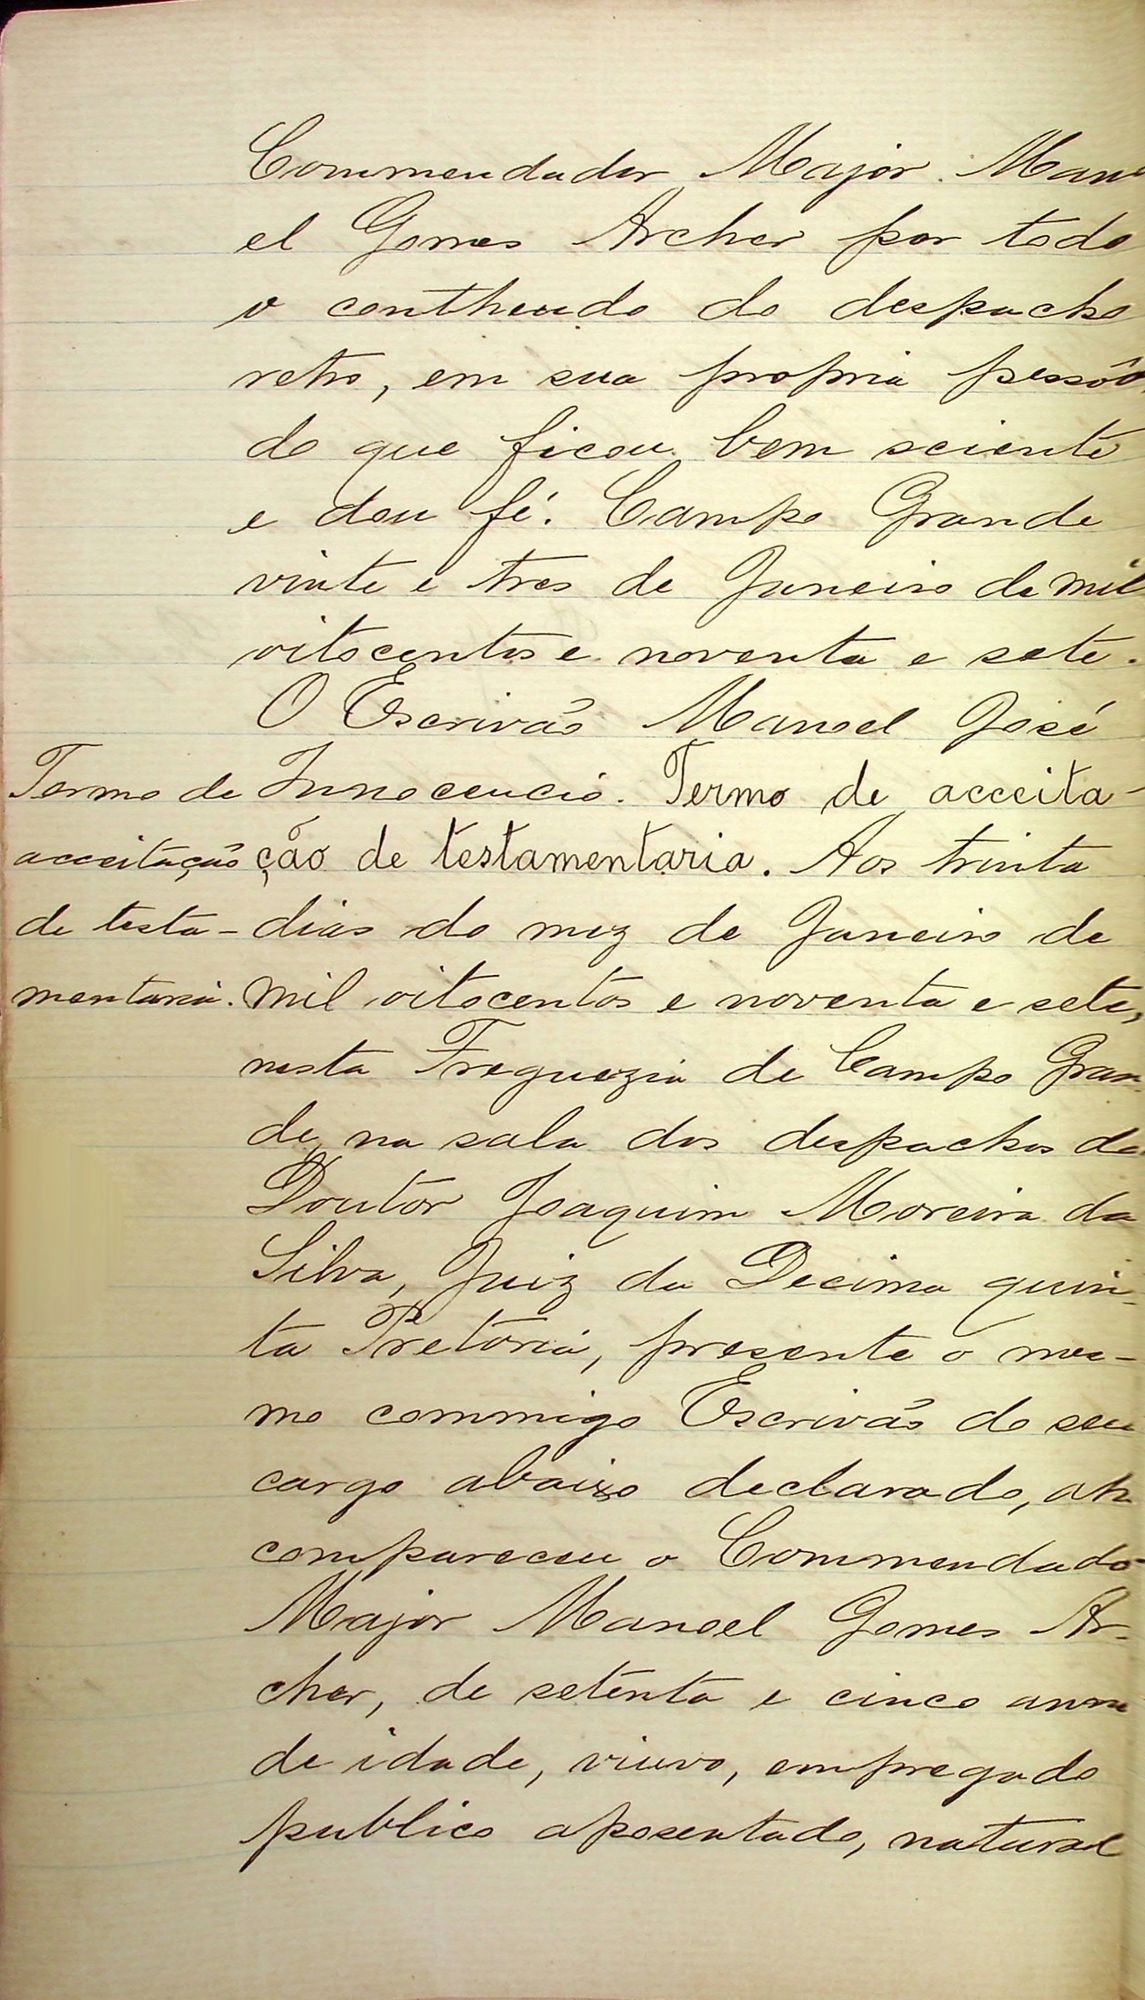 Commendador Major Mano
el Gomes Archer por todo
o contheudo do despacho
retro, em sua propria pessôa
do que ficou bem sciente
e dou fé. Campo Grande
vinte e tres de Janeiro de mil
oitocentos e noventa e sete.
O Escrivão Manoel José
Innocencio. Termo de acceita-
ção de testamentaria. Aos trinta
dias do mez de Janeiro de
mil oitocentos e noventa e sete,
nesta Freguezia de Campo Gran-
de, na sala dos despachos do
Doutor Joaquim Moreira da
Silva, Juiz da Decima quin-
ta Pretoria, presente o mes-
mo commigo Escrivão do seu
cargo abaixo declarado, ahi
compareceu o Commendador
Major Manoel Gomes Ar-
cher, de setenta e cinco annos
de idade, viuvo, empregado
publico aposentado, natural
Termo de
acceitação
de testa-
mentaria.